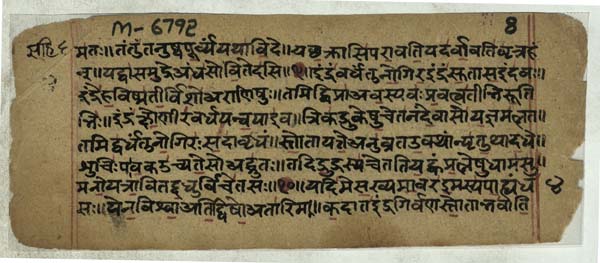 M-6792
४
मतः॥तंतुं तनुष्व पूर्व्यं यथा विदे॥यच्छक्रासि परावति यदर्वावति वृत्रहं
न्॥यद्वा समुद्रे अंधसोवितेदसि॥ इंद्रं वर्धंतु नो गिर इंद्रं सुतास इंदवः॥
इंद्रे हविष्मतीर्विशो अराणिषुः॥तमिद्विप्रा अवस्यवः प्रवत्वतीभिरूति
भिः॥इंद्रं क्षोणीरवर्धयन्वया इव॥त्रिकद्रुकेषु चेतनं देवासो यज्ञमत्नत॥
तमिद्वर्धंतु नो गिरः सदावृधं॥स्तोता यत्ते अनुव्रत उक्थान्यृतुथा दधे॥
शुचिः पावक उच्यते सो अद्भुतः॥तदिद्रुद्रस्य चेतति यह्वं प्रत्नेषु धामसु॥
मनो यत्रा वि तद्दधुर्विचेतसः॥ यदि मे सख्यमावर इमस्य पाह्यंध ४
सः॥येन विश्वा अति द्विषो अतारिम॥कदा त इंद्र गिर्वणः स्तोता भवाति